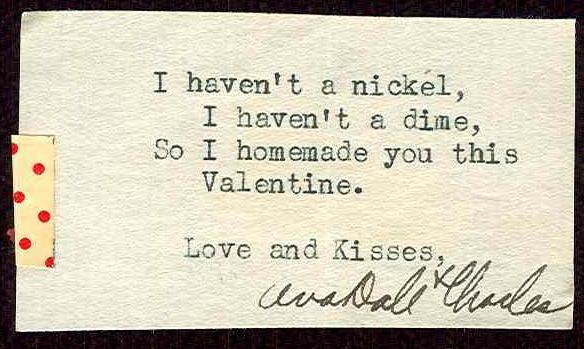 I haven't a nickel,
I haven't a dime,
So I homemade you this
Valentine.
Love and Kisses,
Ava Dale & Charles